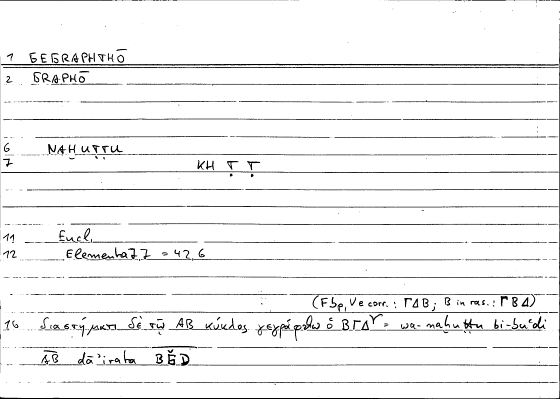 1 GEGRAPHTHŌ
2 GRAPHŌ
6 NAḤUṬṬU
7 KH Ṭ Ṭ
11 Eucl.
12 Elementa 7,7 = 42,6
(Fbp, Ve corr.: ΓΔΒ; B in ras.: ΓΒΔ)
16 διαστήματι δὲ τῷ AB κύκλος γεγράφθω ὁ ΒΓΔ = wa-naḫuṭṭu bi-buʿdi
AB dāʾirata BǦD